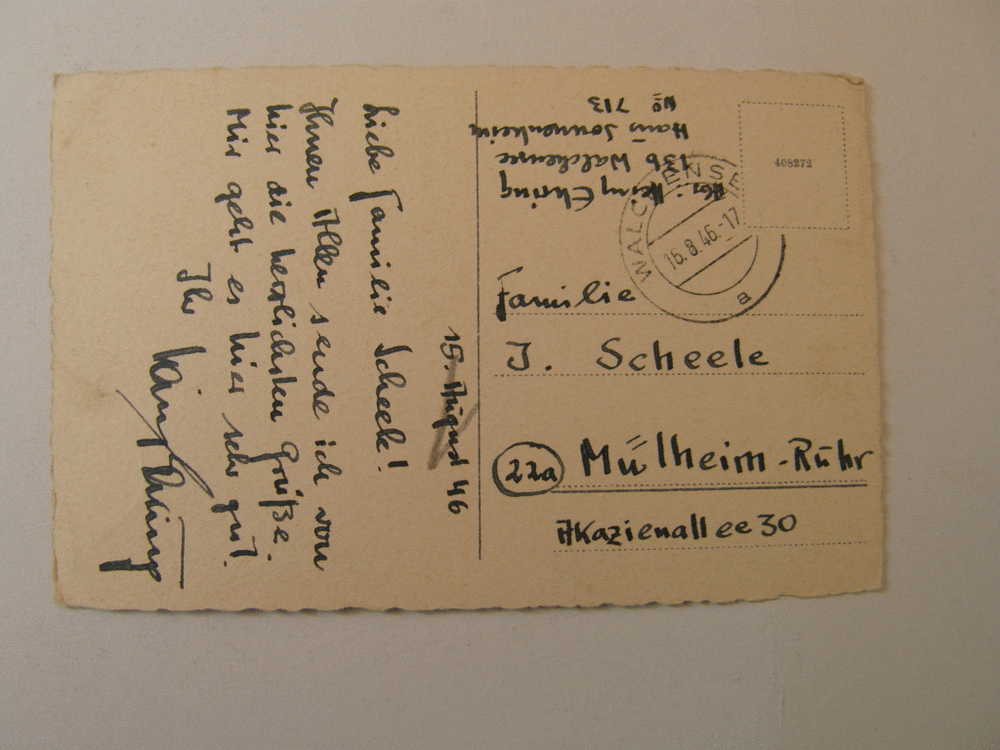 15. August 46
Liebe Familie Scheele!
Ihnen Allen sende ich von
hier die herzlichsten Grüße.
Mir geht es hier sehr gut.
Ihr
Ehring
Abs: Heinz Ehring
13b Walchensee
Haus Sonnenheim
No 713
408272
WALCHENSEE
16.8.46.-17
a
Familie
J. Scheele
22a Mülheim-Ruhr
Akazienallee 30